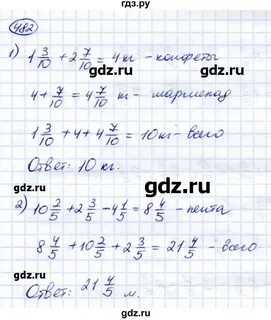 482
1) 1 3/10 + 2 7/10 = 4 кг - конфеты
4 + 7/10 = 4 7/10 кг - мармелад
1 3/10 + 4 + 4 7/10 = 10 кг - всего
Ответ: 10 кг.
2) 10 2/5 + 2 3/5 - 4 1/5 = 8 4/5 - лента
8 4/5 + 10 2/5 + 2 3/5 = 21 4/5 - всего
Ответ: 21 4/5 м.
gdz.ru
gdz.ru
gdz.ru
gdz.ru
gdz.ru
gdz.ru
gdz.ru